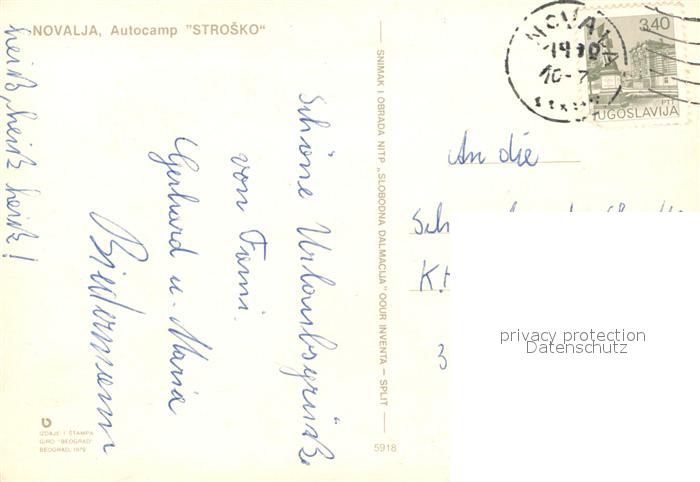 NOVALJA, Autocamp "STROŠKO"
heiß, heiß heiß!
Schöne Urlaubsgrüße
von Fam.
Gerhard u. Maria
Biedermann
SNIMAK I OBRADA NITP „SLOBODNA DALMACIJA" OOUR INVENTA — SPLIT
IZDAJE I ŠTAMPA
GIRO "BEOGRAD"
BEOGRAD, 1979
5918
NOVALJA
10-7
3.40
PTT
JUGOSLAVIJA
An die
Sch
K.H
3
privacy protection
Datenschutz